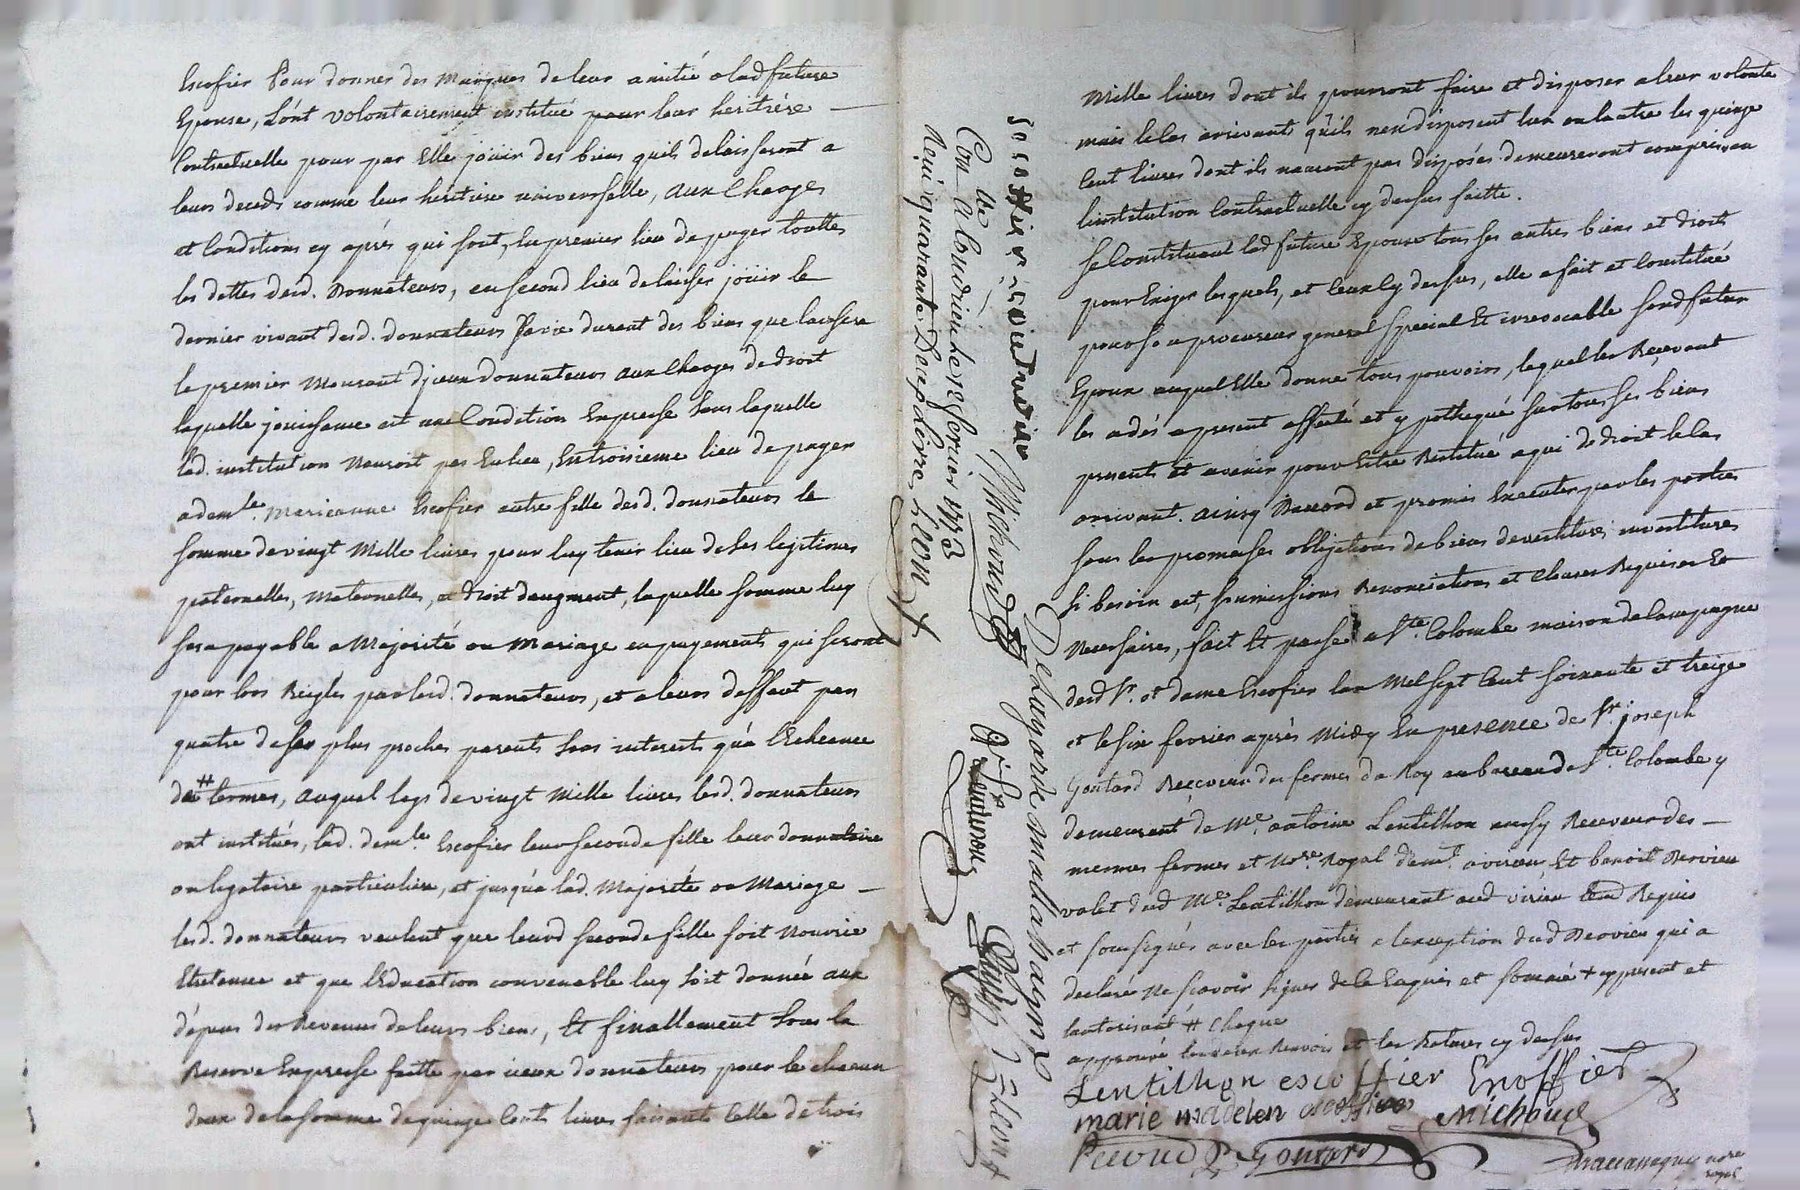 Escofier Pour donner des Marques de leur amitié a lad future
Epouse, L'ont volontairement institué pour leur heritiére
Contractuelle pour par Elle joüir des biens quils delaisseront a
leurs deceds comme leur héritiere universelle, aux Charges
et Conditions cy aprés qui sont, En premier lieu de payer touttes
les dettes desd. Donnateurs, en second lieu de laisser joüir le
dernier vivant desd. donnateurs sa vie durant des biens que laissera
le premier Mourant d'jceux donnateurs aux Charges de droit
laquelle jouissance est une Condition Expresse sans laquelle
lad. institution Nauroit pas Eu lieu, En troisieme lieu de payer
a demlle. Marieanne Escofier autre fille desd. donnateurs la
somme de vingt Mille livres pour luy tenir lieu de ses legitimes
paternelles, Maternelles, et droit daugment, laquelle somme luy
sera payable a Majorité ou Mariage en payements qui seront
pour lors Reiglés par lesd. donnateurs, et a leurs deffaut par
quatre de ses plus proches parents sans interests qu'a l'Echeance
de # termes, auquel legs de vingt Mille livres lesd. donnateurs
ont institués, lad. demlle Escofier leur seconde fille leur donnataire
ou legataire particuliere, et jusqu'a lad. Majorité ou Mariage
lesd. donnateurs veulent que leurd seconde fille soit Nourrie
Entretenue et que l'Education convenable luy soit donnée aux
dépens des Revenus de leurs biens, Et finallement sous la
Reserve Expresse faitte par iceux donnateurs pour le chacun
deux de la somme de quinze Cents livres faisants Celle de trois
Mille livres dont ils pourront faire et disposer a leur volonté
mais le Cas arrivant qu'ils nen disposent lun ou lautre les quinze
Cent livres dont ils nauront pas disposés demeureront compris en
linstitution Contractuelle cy dessus faitte.
Se Constituant lad future Epouse tous ses autres biens et droit
pour Exiger lesquels, et Ceux cy dessus, elle a fait et Constitué
pour son procureur general special Et irrevocable sond futur
Epoux auquel Elle donne tous pouvoirs, lequel les Recevant
les a dés a present affecté et ypothequé sur tous ses biens
presents et avenir pour Estre Restitué a qui de droit le Cas
arrivant. ainsy Daccord et promis Executer par les parties
sous les promesses obligations de biens devestitures investitures
si besoin est, soumissions Renonciations et Clauses Requises Et
Necessaires, fait Et passé a Ste. Colombe maison de Campagne
desd Sr. et dame Escofier lan Mil sept Cent soixante et treize
et le six fevrier aprés Midy En presence de Sr. joseph
Goutard Receveur des fermes du Roy au bureau de Ste Colombe y
demeurant de Me. antoine Lentillon aussy Receveur des
mesmes fermes et Nore. Royal demt. a virieu, Et benoit Dervieu
valet dud Me. Lentillon demeurant aud virieu temd Requis
et soussignés avec les parties a lexception dud Dervieu qui a
declaré Ne scavoir signer de ce Enquis et sommé + y present et
lautorisant # Chaque
approuvé les deux Renvois et les Ratures cy dessus
Lentillon escoffier Enoffier
marie madelen escoffier Michoud
Goutard
nore royal
Delagarde
Michoud
Con.lle a Condrieu le 12 fevrier 1773
Reçu quarante Deux Livres Leon